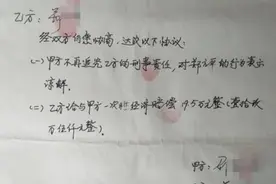 乙方：郭
经双方自愿协商，达成以下协议：
(一)甲方不再追究乙方的刑事责任，对郭元平的行为表示
谅解。
(二)乙方给与甲方一次性经济赔偿17.5万元整(壹拾柒
万伍仟元整)。
甲方：